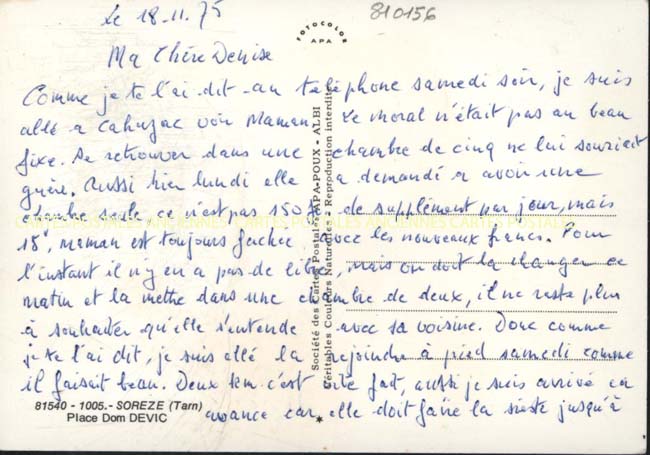 le 18-11-75
810156
FOTOCOLOR
APA
Ma Chère Denise
Comme je te l'ai dit au téléphone samedi soir, je suis
allé a Cahuzac voir Maman. Le moral n'était pas au beau
fixe. Se retrouver dans une chambre de cinq ne lui souriait
guère. Aussi hier lundi elle a demandé a avoir une
chambre seule, ce n'est pas 150 F de supplément par jour, mais
15F, maman est toujours fachée avec les nouveaux francs. Pour
l'instant il n'y en a pas de libre, mais on doit la changer ce
matin et la mettre dans une chambre de deux, il ne reste plus
à souhaiter qu'elle s'entende avec sa voisine. Donc comme
je te l'ai dit, je suis allé la rejoindre à pied samedi comme
il faisait beau. Deux km c'est vite fait, aussi je suis arrivé en
avance car elle doit faire la sieste jusqu'à
Société des Cartes Postales APA-POUX - ALBI
Véritables Couleurs Naturelles - Reproduction interdite
81540 - 1005.- SOREZE (Tarn)
Place Dom DEVIC